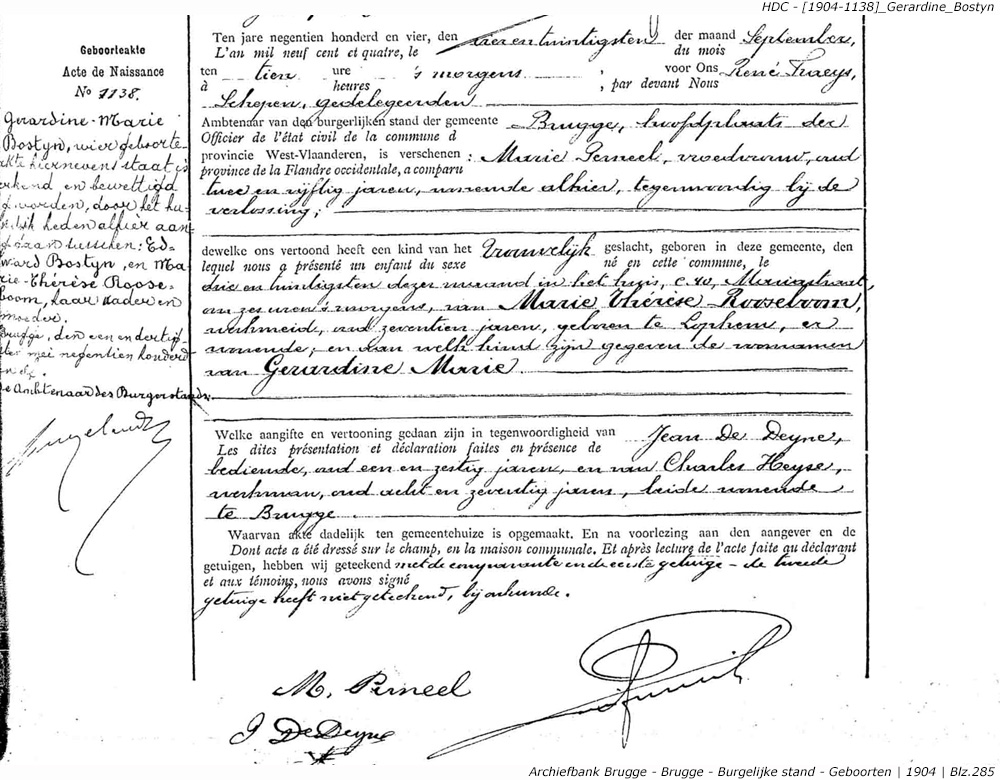 HDC - [1904-1138]_Gerardine_Bostyn
Geboorteakte
Acte de Naissance
No 1138.
Gerardine-Marie
Bostyn, wier geboorte-
akte hierneven staat is
erkend en bewettigd
geworden, door het hu-
welijk heden alhier aan-
gegaan tusschen: Ed-
ward Bostyn, en Ma-
rie-Thérèse Roose-
boom, haar vader en
moeder.
Brugge, den een en dertig-
sten mei negentien honderd
De Ambtenaar des Burgerstands.
Ten jare negentien honderd en vier, den vier en twintigsten der maand September,
L'an mil neuf cent et quatre, le du mois
ten tien ure 's morgens ; voor Ons René Traeys,
à heures ; par devant Nous
Schepen, gedelegeerden
Ambtenaar van den burgerlijken stand der gemeente Brugge, hoofdplaats der
Officier de l'état civil de la commune d
provincie West-Vlaanderen, is verschenen : Marie Perneel, vroedvrouw, oud
province de la Flandre occidentale, a comparu
twee en vijftig jaren, wonende alhier, tegenwoordig bij de
verlossing;
dewelke ons vertoond heeft een kind van het Vrouwelijk geslacht, geboren in deze gemeente, den
lequel nous a présenté un enfant du sexe né en cette commune, le
drie en twintigsten dezer maand in het huis, C. 40, Mariastraat,
om zes uren 's morgens, van Marie Thérèse Rooseboom,
werkmeid, oud zeventien jaren, geboren te Lophem, er
wonende; en aan welk kind zijn gegeven de voornamen
van Gerardine Marie
Welke aangifte en vertooning gedaan zijn in tegenwoordigheid van Jean De Deyne,
Les dites présentation et déclaration faites en présence de
bediende, oud een en zestig jaren, en van Charles Heyse,
werkman, oud acht en zeventig jaren, beide wonende
te Brugge
Waarvan akte dadelijk ten gemeentehuize is opgemaakt. En na voorlezing aan den aangever en de
Dont acte a été dressé sur le champ, en la maison communale. Et après lecture de l'acte faite au déclarant
getuigen, hebben wij geteekend met de comparante en de eerste getuige - de tweede
et aux témoins, nous avons signé
getuige heeft niet geteekend, bij oorkunde.
M. Perneel
J De Deyne
Archiefbank Brugge - Brugge - Burgelijke stand - Geboorten | 1904 | Blz.285